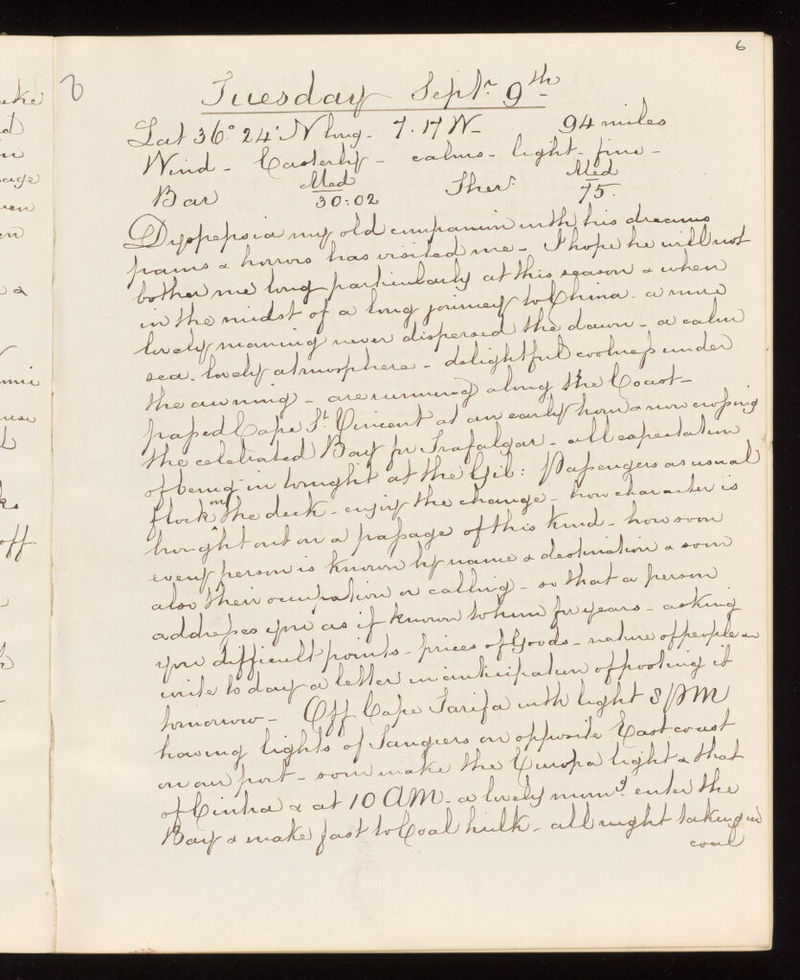 6
Tuesday Septr. 9th
Lat 36° 24' N long - 7.17 W - 94 miles
Wind - Easterly - calms - light - fine -
Bar Med 30:02 Ther. Med 75.
Dyspepsia my old companion with his dreams
pains & horrors has visited me - I hope he will not
bother me long particularly at this season & when
in the midst of a long journey to China - a more
lovely morning never dispersed the dawn - a calm
sea - lovely atmosphere - delightful coolness under
the awning - are running along the Coast -
passed Cape St. Vincent at an early hour & now crossing
the celebrated Bay for Trafalgar - all expectation
of being in tonight at the Gib: Passengers as usual
flock on the deck - enjoy the change - how character is
brought out on a passage of this kind - how soon
every person is known by name & destination & soon
also their occupation or calling - so that a person
addresses you as if known to him for years - asking
you difficult points - prices of Goods - nature of people
write to day a letter in anticipation of posting it
tomorrow - Off Cape Tarifa with light 8 PM
having lights of Tangiers on opposite East coast
on our port - soon make the Europa light & that
of & at 10 AM - a lovely enter the
Bay & make fast to Coal hulk - all night taking in
coal